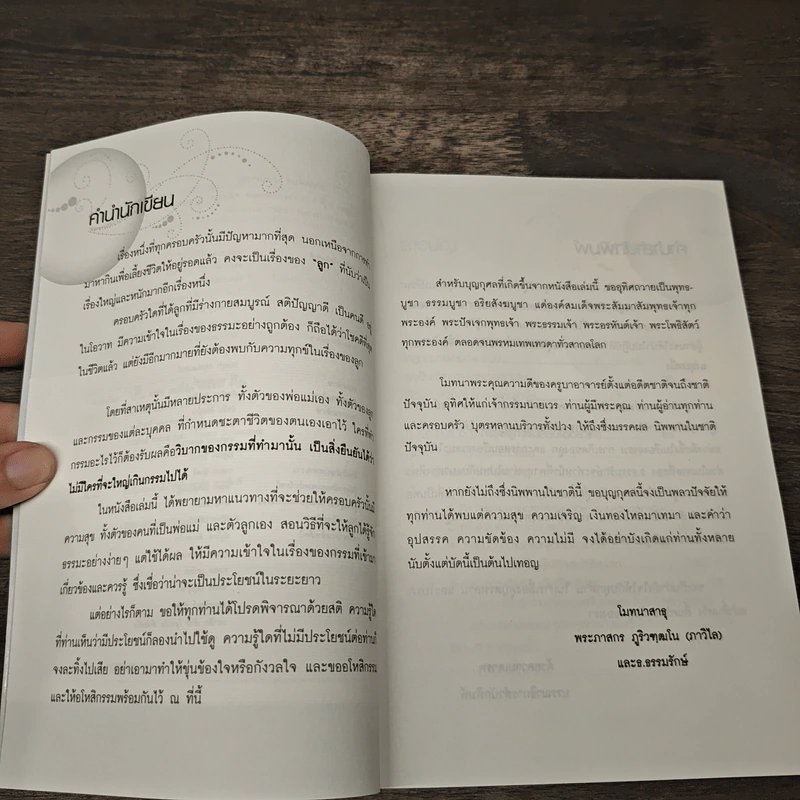 คำนำนักเขียน
เรื่องหนึ่งที่ทุกครอบครัวนั้นมีปัญหามากที่สุด นอกเหนือจากการทำ
มาหากินเพื่อเลี้ยงชีวิตให้อยู่รอดแล้ว คงจะเป็นเรื่องของ "ลูก" ที่นับว่าเป็น
เรื่องใหญ่และหนักมากอีกเรื่องหนึ่ง
ครอบครัวใดที่ได้ลูกที่มีร่างกายสมบูรณ์ สติปัญญาดี เป็นคนดี อยู่
ในโอวาท มีความเข้าใจในเรื่องของธรรมะอย่างถูกต้อง ก็ถือได้ว่าโชคดีที่สุด
ในชีวิตแล้ว แต่ยังมีอีกมากมายที่ยังต้องพบกับความทุกข์ในเรื่องของลูก
โดยที่สาเหตุนั้นมีหลายประการ ทั้งตัวของพ่อแม่เอง ทั้งตัวของลูก
และกรรมของแต่ละบุคคล ที่กำหนดชะตาชีวิตของตนเองเอาไว้ ใครที่ทำ
กรรมอะไรไว้ก็ต้องรับผลคือวิบากของกรรมที่ทำมานั้น เป็นสิ่งยืนยันได้ว่า
ไม่มีใครที่จะใหญ่เกินกรรมไปได้
ในหนังสือเล่มนี้ ได้พยายามหาแนวทางที่จะช่วยให้ครอบครัวนั้นมี
ความสุข ทั้งตัวของคนที่เป็นพ่อแม่ และตัวลูกเอง สอนวิธีที่จะให้ลูกได้รู้จัก
ธรรมะอย่างง่ายๆ แต่ใช้ได้ผล ให้มีความเข้าใจในเรื่องของกรรมที่เข้ามา
เกี่ยวข้องและควรรู้ ซึ่งเชื่อว่าน่าจะเป็นประโยชน์ในระยะยาว
แต่อย่างไรก็ตาม ขอให้ทุกท่านได้โปรดพิจารณาด้วยสติ ความรู้ใด
ที่ท่านเห็นว่ามีประโยชน์ก็ลองนำไปใช้ดู ความรู้ใดที่ไม่มีประโยชน์ต่อท่านก็
จงละทิ้งไปเสีย อย่าเอามาทำให้ขุ่นข้องใจหรือกังวลใจ และขออโหสิกรรม
และให้อโหสิกรรมพร้อมกันไว้ ณ ที่นี้
สำหรับบุญกุศลที่เกิดขึ้นจากหนังสือเล่มนี้ ขออุทิศถวายเป็นพุทธ-
บูชา ธรรมบูชา อริยสังฆบูชา แด่องค์สมเด็จพระสัมมาสัมพุทธเจ้าทุก
พระองค์ พระปัจเจกพุทธเจ้า พระธรรมเจ้า พระอรหันต์เจ้า พระโพธิสัตว์
ทุกพระองค์ ตลอดจนพรหมเทพเทวดาทั่วสากลโลก
โมทนาพระคุณความดีของครูบาอาจารย์ตั้งแต่อดีตชาติจนถึงชาติ
ปัจจุบัน อุทิศให้แก่เจ้ากรรมนายเวร ท่านผู้มีพระคุณ ท่านผู้อ่านทุกท่าน
และครอบครัว บุตรหลานบริวารทั้งปวง ให้ถึงซึ่งมรรคผล นิพพานในชาติ
ปัจจุบัน
หากยังไม่ถึงซึ่งนิพพานในชาตินี้ ขอบุญกุศลนี้จงเป็นพลวปัจจัยให้
ทุกท่านได้พบแต่ความสุข ความเจริญ เงินทองไหลมาเทมา และคำว่า
อุปสรรค ความขัดข้อง ความไม่มี จงได้อย่าบังเกิดแก่ท่านทั้งหลาย
นับตั้งแต่บัดนี้เป็นต้นไปเทอญ
โมทนาสาธุ
พระภาสกร ภูริวฑฺฒโน (ภาวิไล)
และธ.ธรรมรักษ์